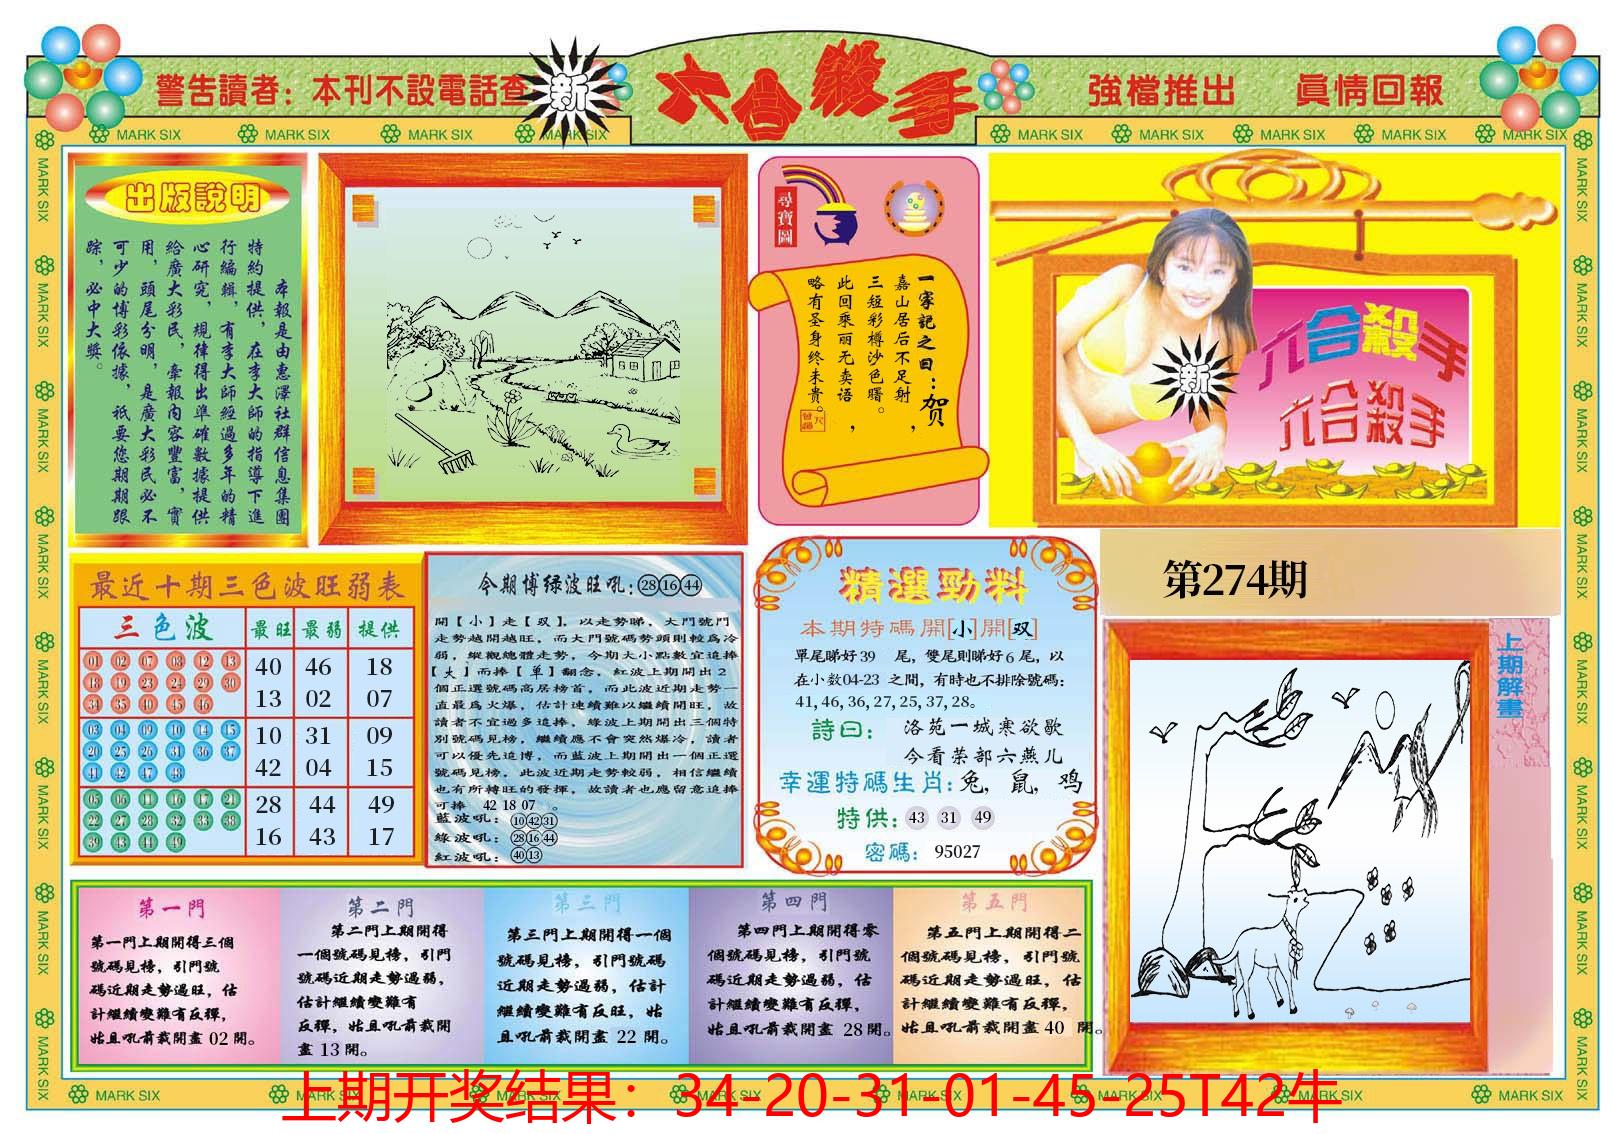 警告讀者：本刊不設電話查
新
六合殺手
強檔推出 眞情回報
MARK SIX
出版說明
本報是由惠澤社群信息集團
特約提供，在李大師的指導下進
行編輯，有李大師經過多年的精
心研究，規律得出準確數據提供
給廣大彩民，牽報內容豐富，實
用，頭尾分明，是廣大彩民必不
可少的博彩依據，祇要您期期跟
踪，必中大獎。
尋寶圖
一家記之曰：贺
嘉山居后不足射，
三短彩樽沙色曙。
此回乘丽无卖语，
略有圣身终未貴。
六合殺手
六合殺手
新
第274期
上期解畫
最近十期三色波旺弱表
三色波 最旺 最弱 提供
01 02 07 08 12 13
18 19 23 24 29 30
34 35 40 45 46
40 46 18
13 02 07
03 04 09 10 14 15
20 25 26 31 36 37
41 42 47 48
10 31 09
42 04 15
05 06 11 16 17 21
22 27 28 32 33 38
39 43 44 49
28 44 49
16 43 17
今期博绿波旺吼：28 16 44
開【小】走【双】，以走勢睇，大門號門
走勢越開越旺，而大門號碼勢頭則較爲冷
弱，縱觀總體走勢，今期大小點數宜追捧
【大】而捧【单】翻念，紅波上期開出2
個正選號碼高居榜首，而此波近期走勢一
直最爲火爆，估計連續難以繼續開旺，故
讀者不宜過多追捧，綠波上期開出三個特
別號碼見榜，繼續應不會突然爆冷，讀者
可以優先追博，而藍波上期開出一個正選
號碼見榜，此波近期走勢較弱，相信繼續
也有所轉旺的發揮，故讀者也應留意追捧
可捧 42 18 07 。
藍波吼：10 42 31
綠波吼：28 16 44
紅波吼：40 13
精選勁料
本期特碼開[小]開[双]
單尾睇好39 尾，雙尾則睇好6尾，以
在小数04-23 之間，有時也不排除號碼：
41, 46, 36, 27, 25, 37, 28。
詩曰： 洛苑一城寒欲歇
今看荣部六燕儿
幸運特碼生肖：兔, 鼠, 鸡
特供：43 31 49
密碼：95027
第一門
第一門上期開得三個
號碼見榜，引門號
碼近期走勢過旺，估
計繼續變難有反彈，
姑且吼前裁開畫 02 開。
第二門
第二門上期開得
一個號碼見榜，引門
號碼近期走勢過弱，
估計繼續變難有
反彈，姑且吼前裁開
畫 13 開。
第三門
第三門上期開得一個
號碼見榜，引門號碼
近期走勢過弱，估計
繼續變難有反旺，姑
且吼前裁開畫 22 開。
第四門
第四門上期開得零
個號碼見榜，引門號
碼近期走勢過弱，估
計繼續變難有反彈，
姑且吼前裁開畫 28 開。
第五門
第五門上期開得二
個號碼見榜，引門號
碼近期走勢過旺，估
計繼續變難有反彈，
姑且吼前裁開畫 40 開。
上期开奖结果：34-20-31-01-45-25T42牛